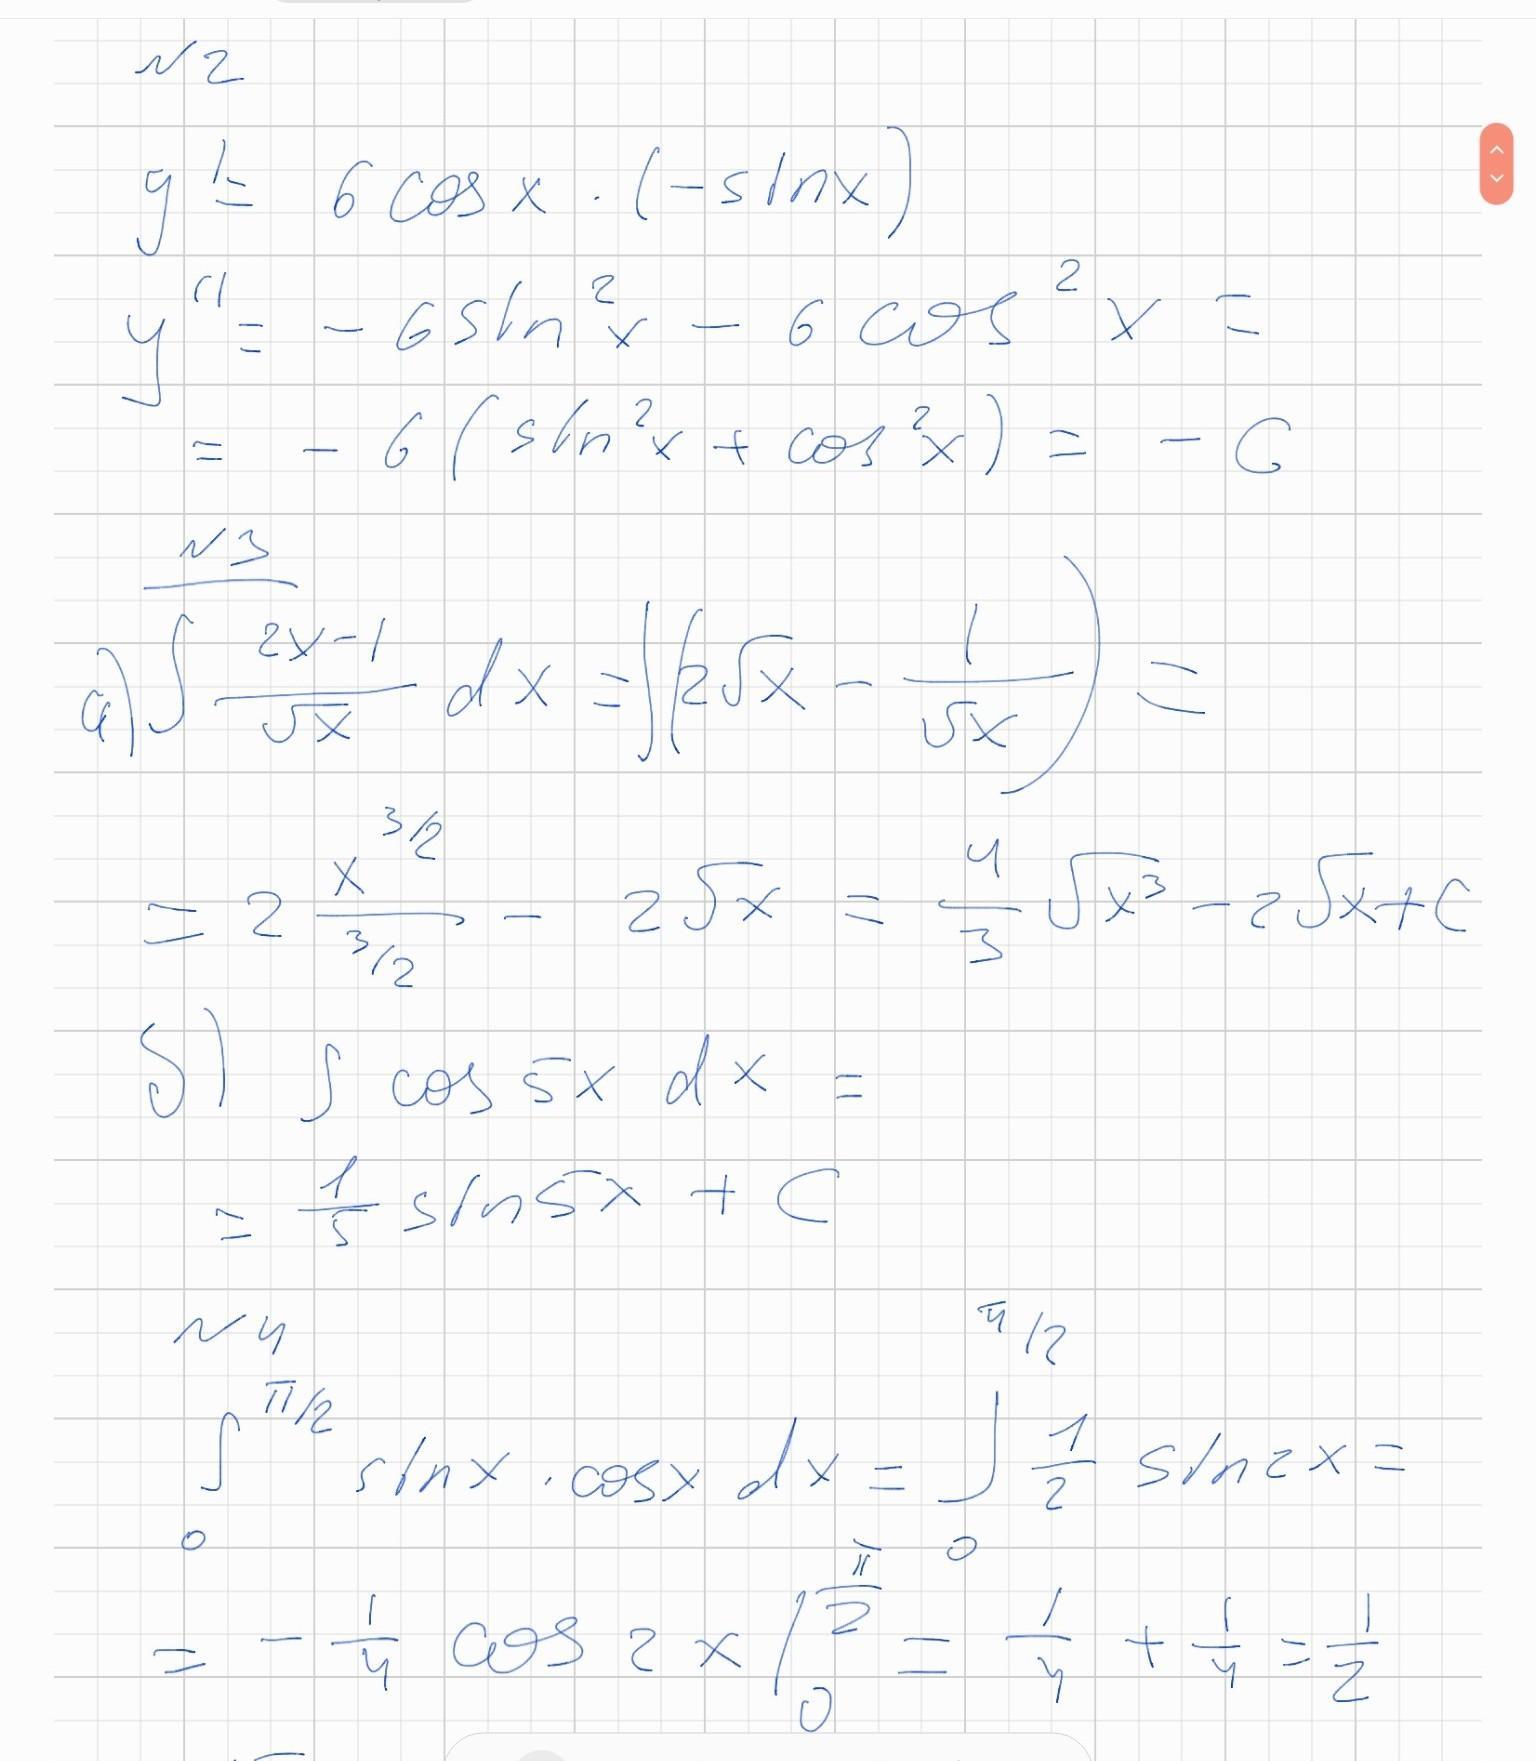 N2
y' = 6 cos x · (-sin x)
y'' = - 6 sin² x - 6 cos² x =
= - 6 ( sin² x + cos² x ) = - 6
N3
a) ∫ (2x-1)/√x dx = ∫(2√x - 1/√x) =
= 2 x^(3/2)/(3/2) - 2√x = 4/3 √x³ - 2√x + C
б) ∫ cos 5x dx =
= 1/5 sin 5x + C
N4
∫₀^(π/2) sin x · cos x dx = ∫₀^(π/2) 1/2 sin 2x =
= - 1/4 cos 2x |₀^(π/2) = 1/4 + 1/4 = 1/2